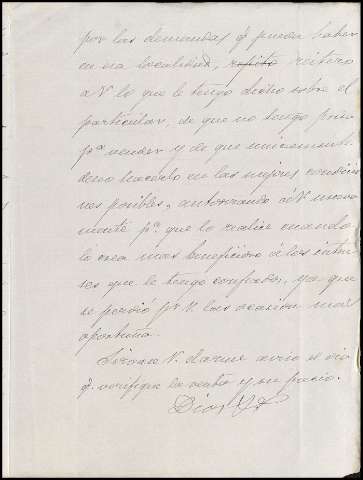 por las demandas q̃ pueda haber
en esa localidad, repito reitero
a V lo que le tengo dicho sobre el
particular, de que no tengo prisa
pª vender y de que unicamente
deseo hacerlo en las mejores condicio
nes posibles, autorizando á V nueva
mente pª que lo realice cuando
lo crea mas beneficioso á los inte
ses que le tengo confiados, ya que
se perdió pr V. la ocasion mas
oportuna.
Sirvase V. darme aviso el dia
q. verifique la venta y su precio.
Dios